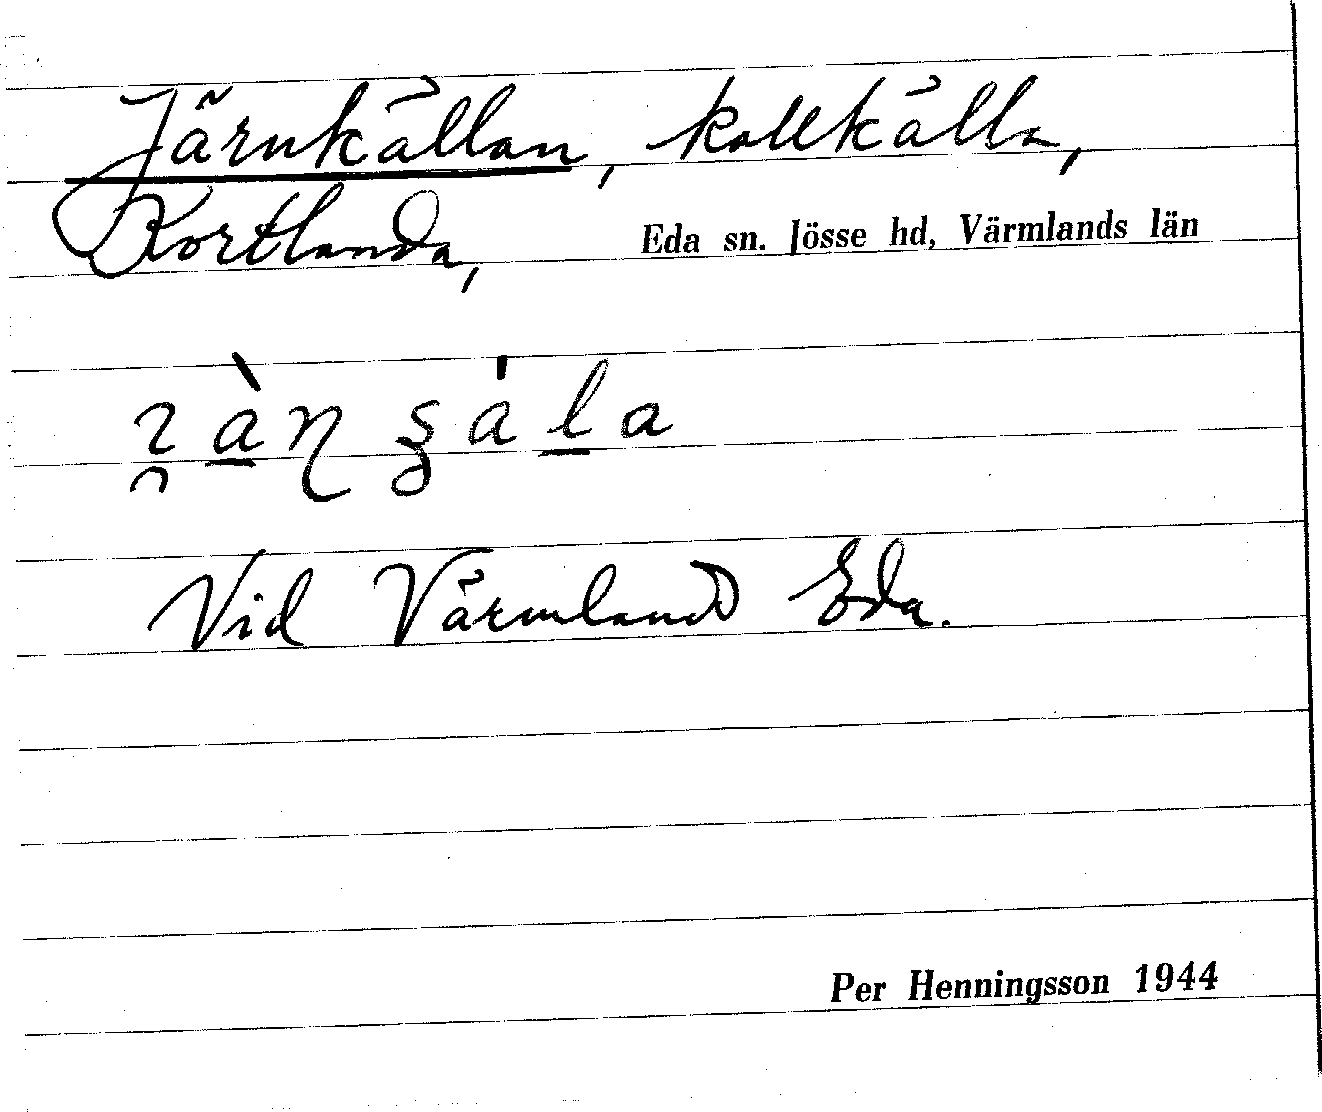 Järnkällan, kallkälla,
Kortlanda, Eda sn. Jösse hd, Värmlands län
Vid Värmland Eda.
Per Henningsson 1944